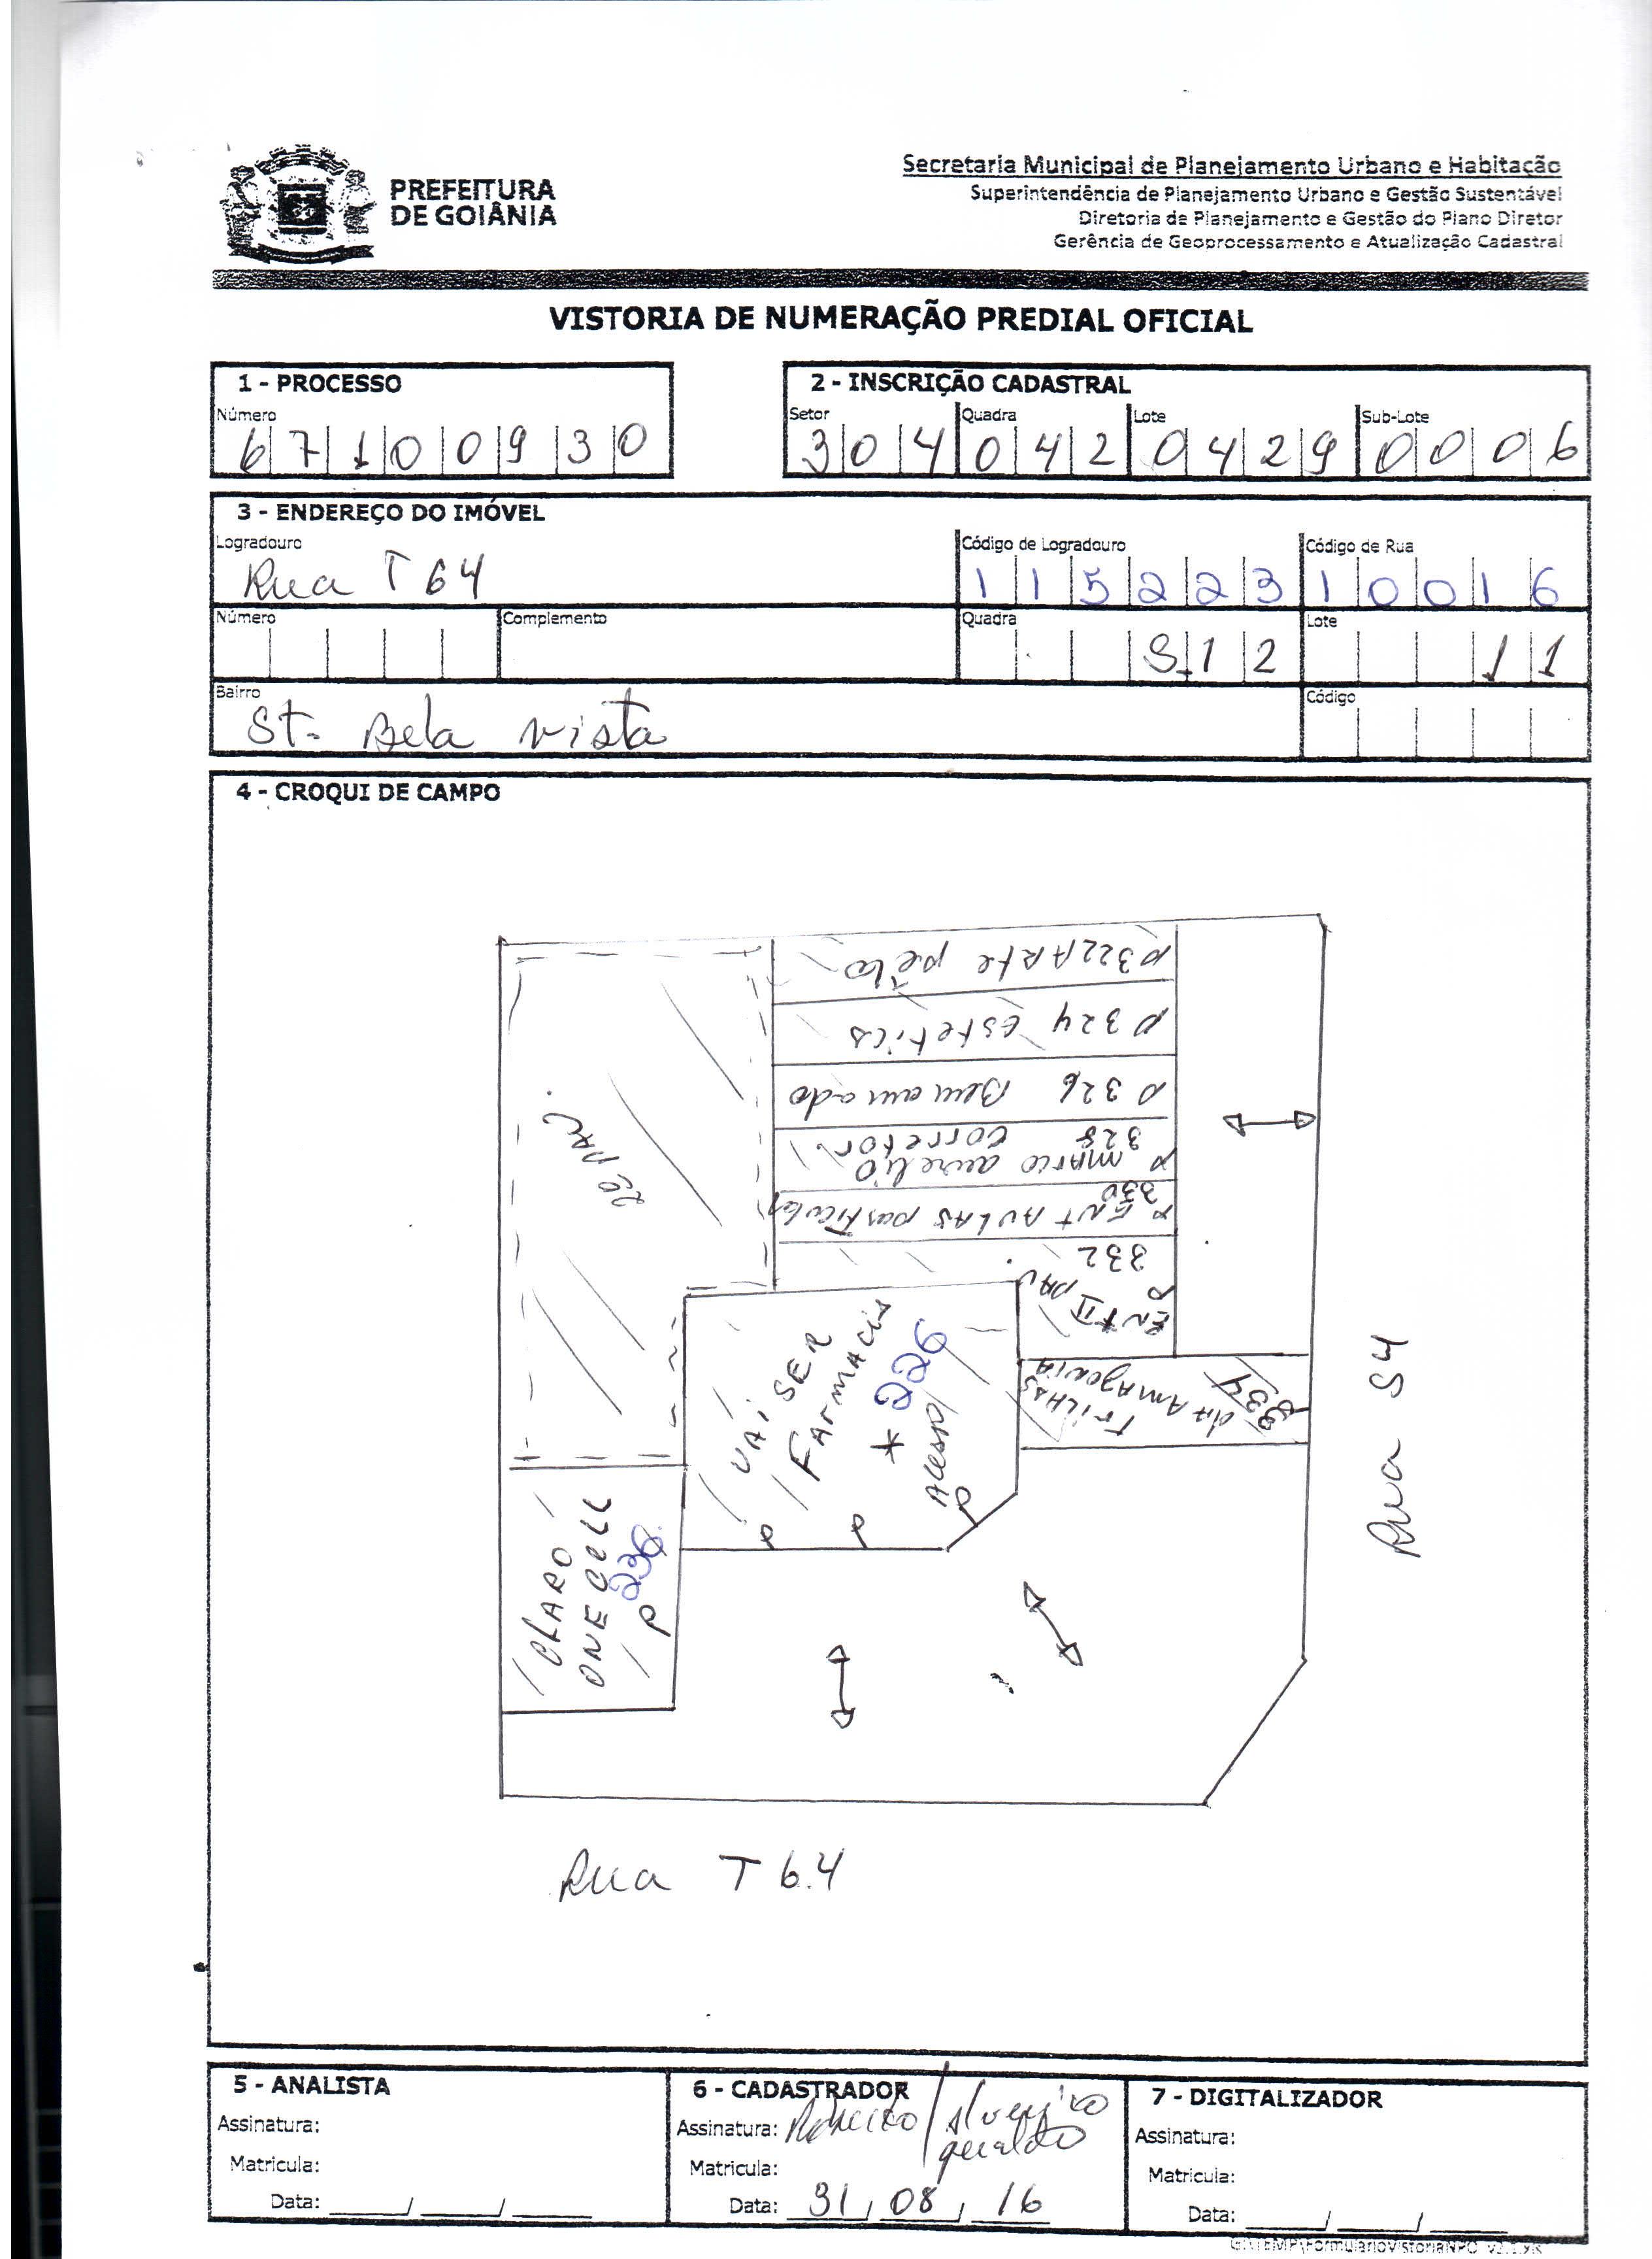 PREFEITURA
DE GOIÂNIA
Secretaria Municipal de Planejamento Urbano e Habitação
Superintendência de Planejamento Urbano e Gestão Sustentável
Diretoria de Planejamento e Gestão do Plano Diretor
Gerência de Geoprocessamento e Atualização Cadastral
VISTORIA DE NUMERAÇÃO PREDIAL OFICIAL
1 - PROCESSO
Número
6 7 1 0 0 9 3 0
2 - INSCRIÇÃO CADASTRAL
Setor Quadra Lote Sub-Lote
3 0 4 0 4 2 0 4 2 9 0 0 0 6
3 - ENDEREÇO DO IMÓVEL
Logradouro Código de Logradouro Código de Rua
Rua T 64 1 1 5 2 2 3 1 0 0 1 6
Número Complemento Quadra Lote
S.1 2 1 1
Bairro Código
St. Bela vista
4 - CROQUI DE CAMPO
322 Arte pelo
324 Estetica
326 Bemamado
328
marco aurelio
corretor
330
ENT AULAS particular
332
ENT II PAV
2º PAV.
VAI SER
FARMACIA
* 226
Acesso
TRILHAS
da AMAZONIA
334
CLARO
ONE CELL
236
Rua S4
Rua T 64
5 - ANALISTA
Assinatura:
Matricula:
Data: ____/____/____
6 - CADASTRADOR
Assinatura: / geraldo
Matricula:
Data: 31/08/16
7 - DIGITALIZADOR
Assinatura:
Matricula:
Data: ____/____/____